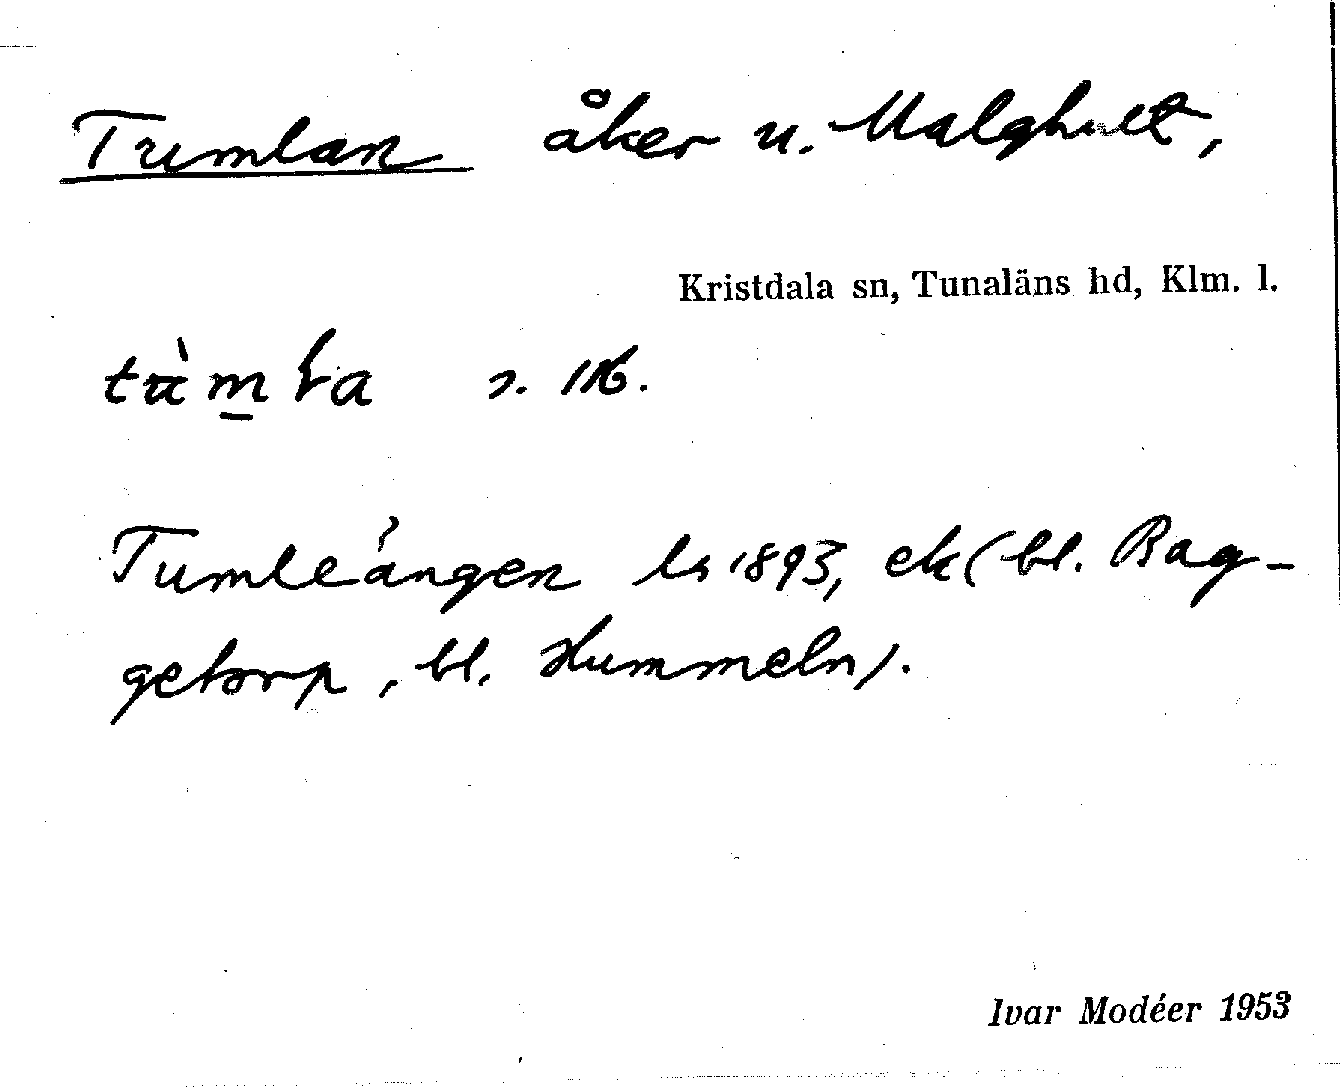 Tumlan åker u. Malghult,
Kristdala sn, Tunaläns hd, Klm. l.
s. 116.
Tumleängen ls 1893, ek (bl. Bag-
getorp, bl. Hummeln).
Ivar Modéer 1953